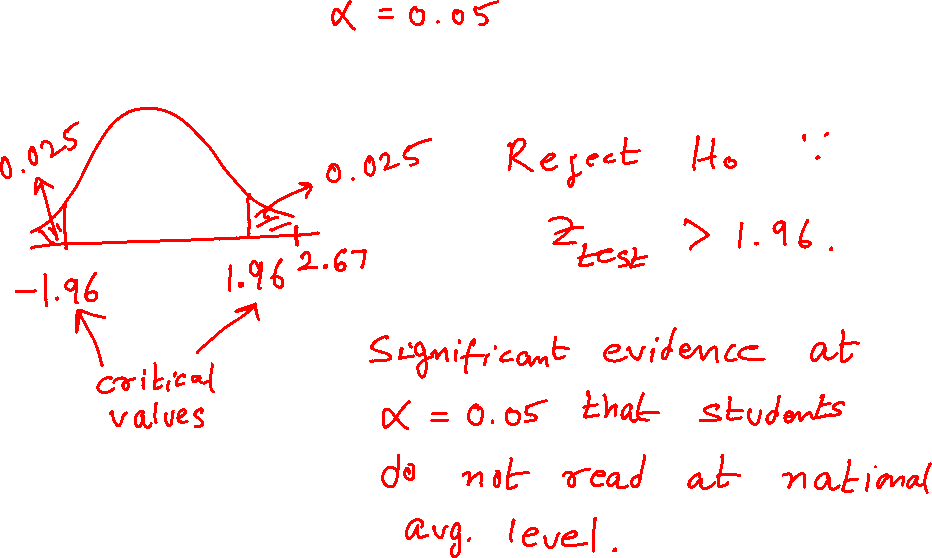 α = 0.05
0.025
0.025
-1.96
1.96
2.67
critical
values
Reject H₀ ∵
Z_test > 1.96.
Significant evidence at
α = 0.05 that students
do not read at national
avg. level.